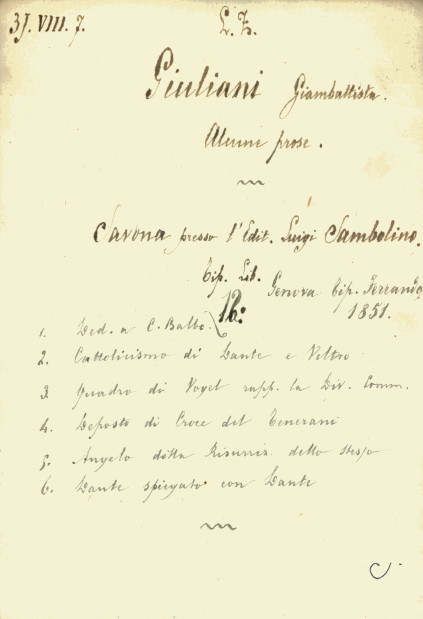 3J. VIII. 7.
L. Z.
Giuliani Giambattista.
Alcune prose.
Savona presso l'Edit. Luigi Sambolino.
Tip. Lit.
Genova Tip. Ferrando
16:
1851.
1. Ded. a C. Balbo.
2. Cattolicismo di Dante e Veltro
3. Quadro di Vogel rapp. la Div. Comm.
4. Deposto di Croce del Tenerani
5. Angelo della Risurrez. dello stesso
6. Dante spiegato con Dante